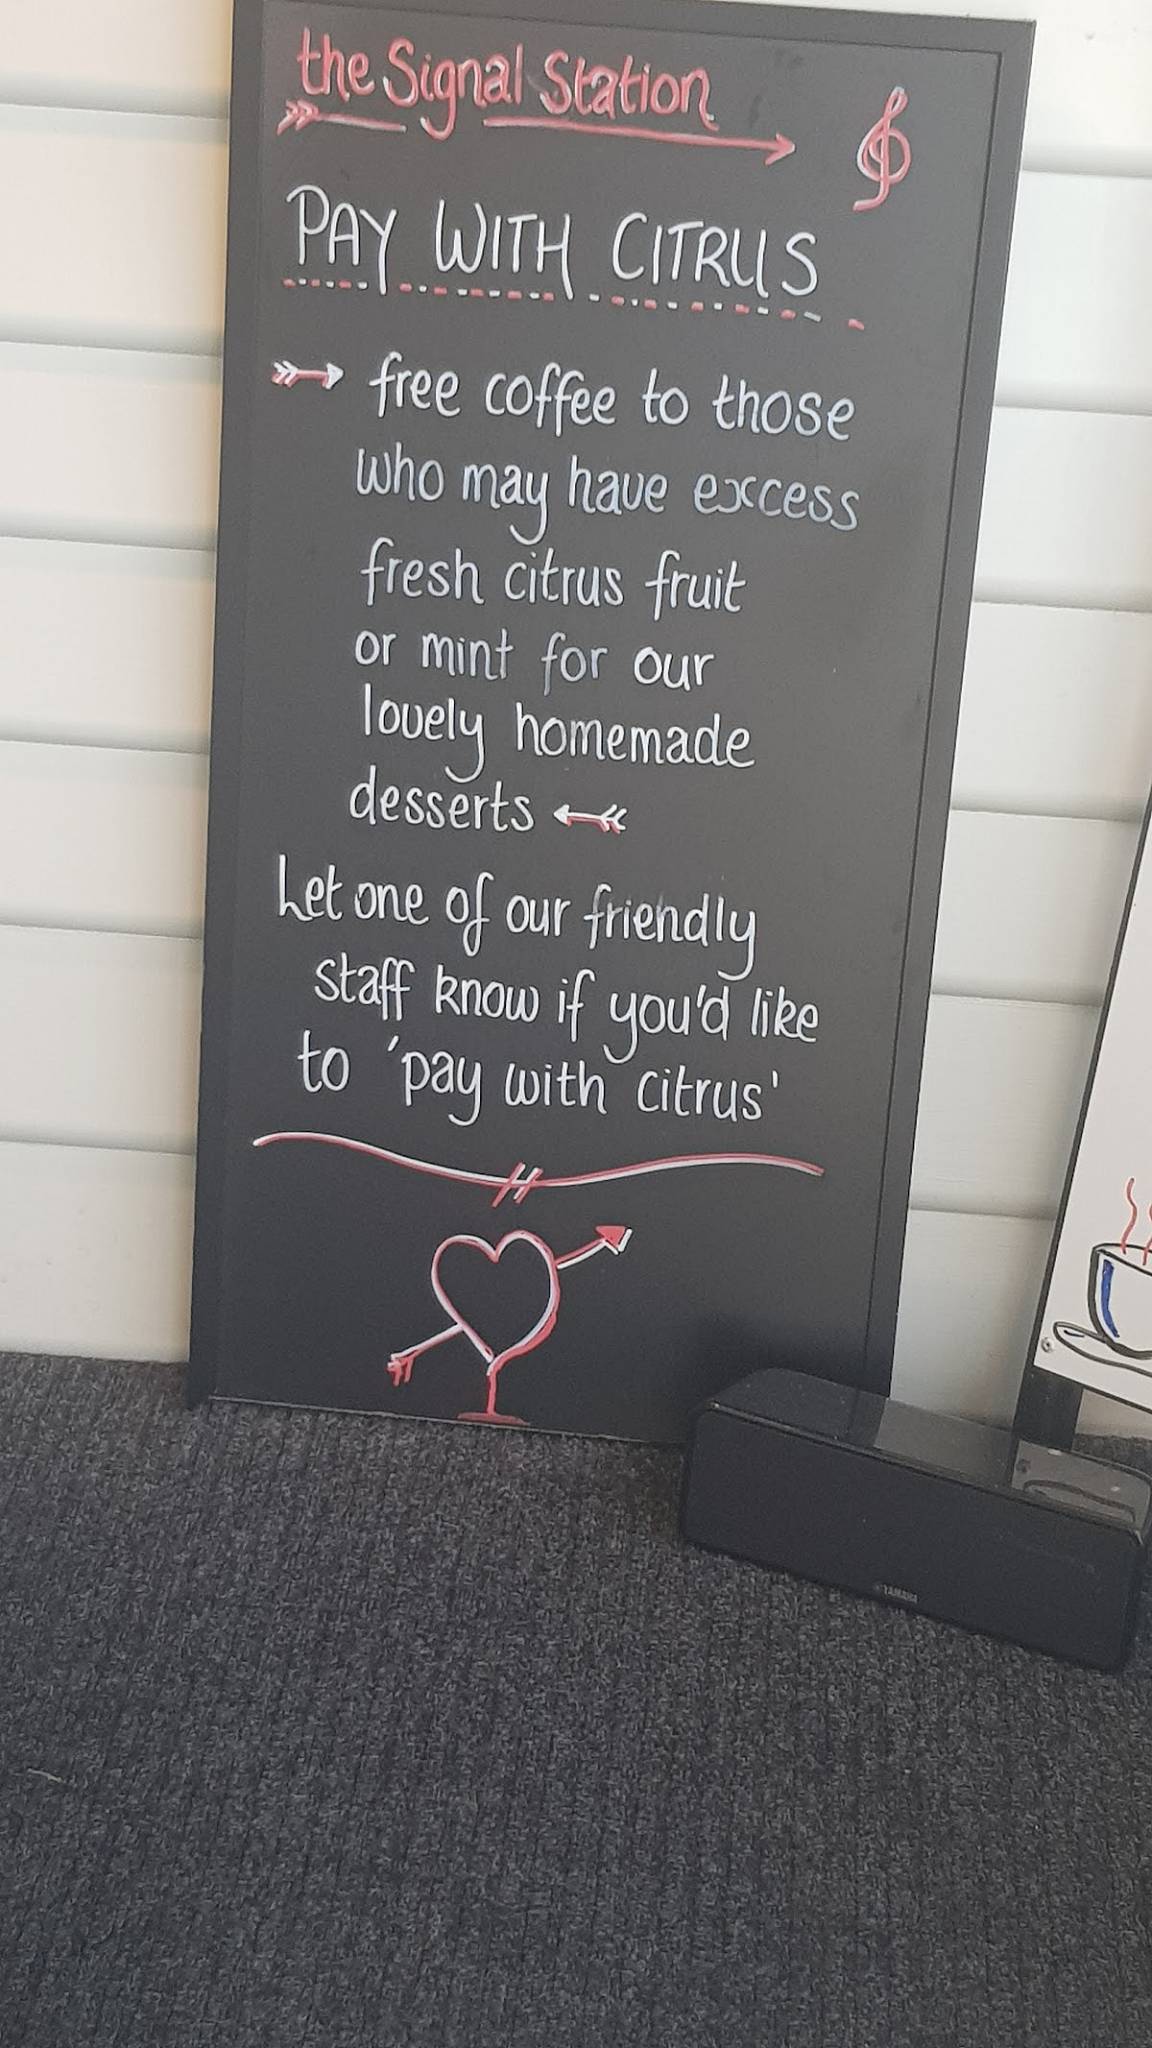 the Signal Station
PAY WITH CITRUS
free coffee to those
who may have excess
fresh citrus fruit
or mint for our
lovely homemade
desserts
Let one of our friendly
staff know if you'd like
to 'pay with citrus'
YAMAHA